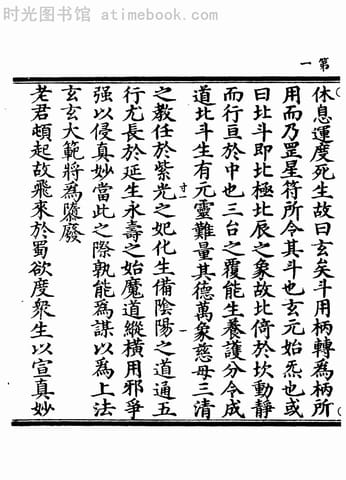 时光图书馆 - atimebook.com
第一
休息運度死生故曰玄矣斗用柄轉為柄所
用而乃罡星符所令其斗也玄元始炁也或
曰北斗即北極北辰之象故北倚於坎動靜
而行亘於中也三台之覆能生養護分令成
道北斗生有元靈難量其德萬象慈母三清
之教任於紫光之妃化生備陰陽之道通五
行尤長於延生永壽之始魔道縱橫用邪爭
强以侵真妙當此之際孰能為謀以為上法
玄玄大範將為隳廢
老君頓起故飛來於蜀欲度衆生以宣真妙